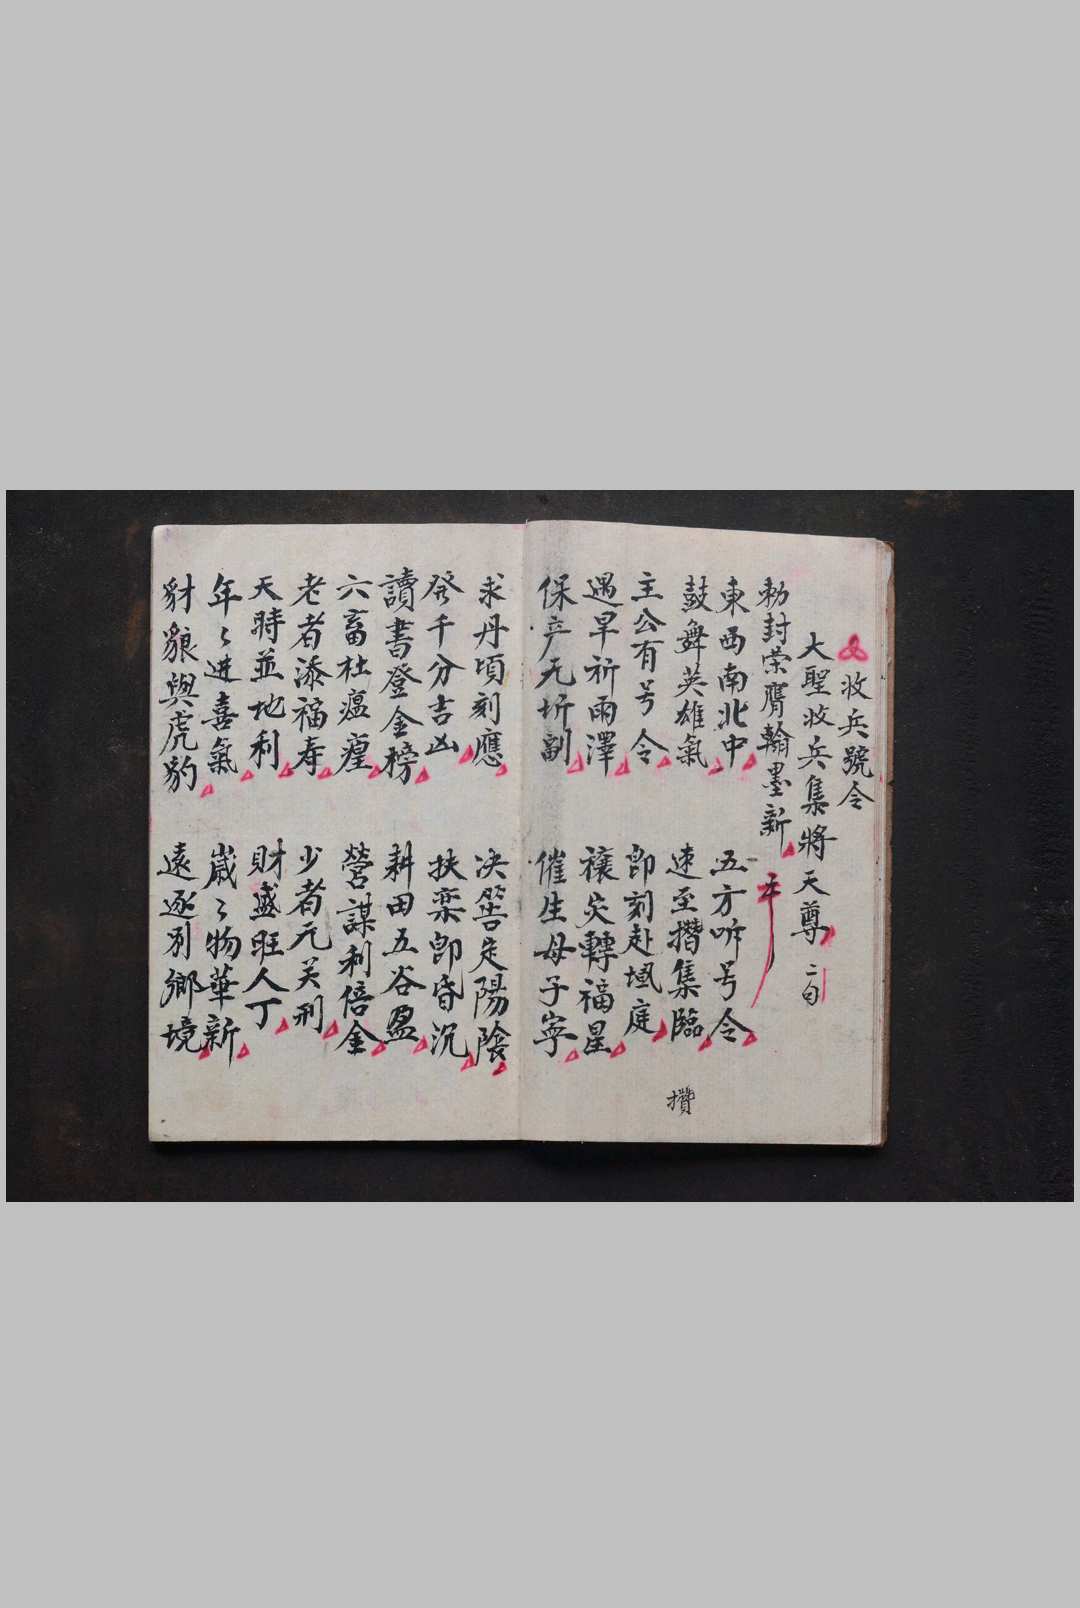 收兵號令
大聖收兵集將天尊 二句
勅封荣膺翰墨新
東西南北中 五方听号令
鼓舞英雄氣 速至攢集臨
攢
主公有号令 即刻赴壇庭
遇旱祈雨澤 禳灾轉福星
保产无坼副 催生母子寧
求丹頃刻應 决筶定陽陰
發千分吉凶 扶栾即昏沉
讀書登金榜 耕田五谷盈
六畜杜瘟瘴 營謀利倍金
老者添福寿 少者元关刑
天時並地利 財盛旺人丁
年〻进喜氣 歲〻物華新
豺狼與虎豹 遠逐别鄉境